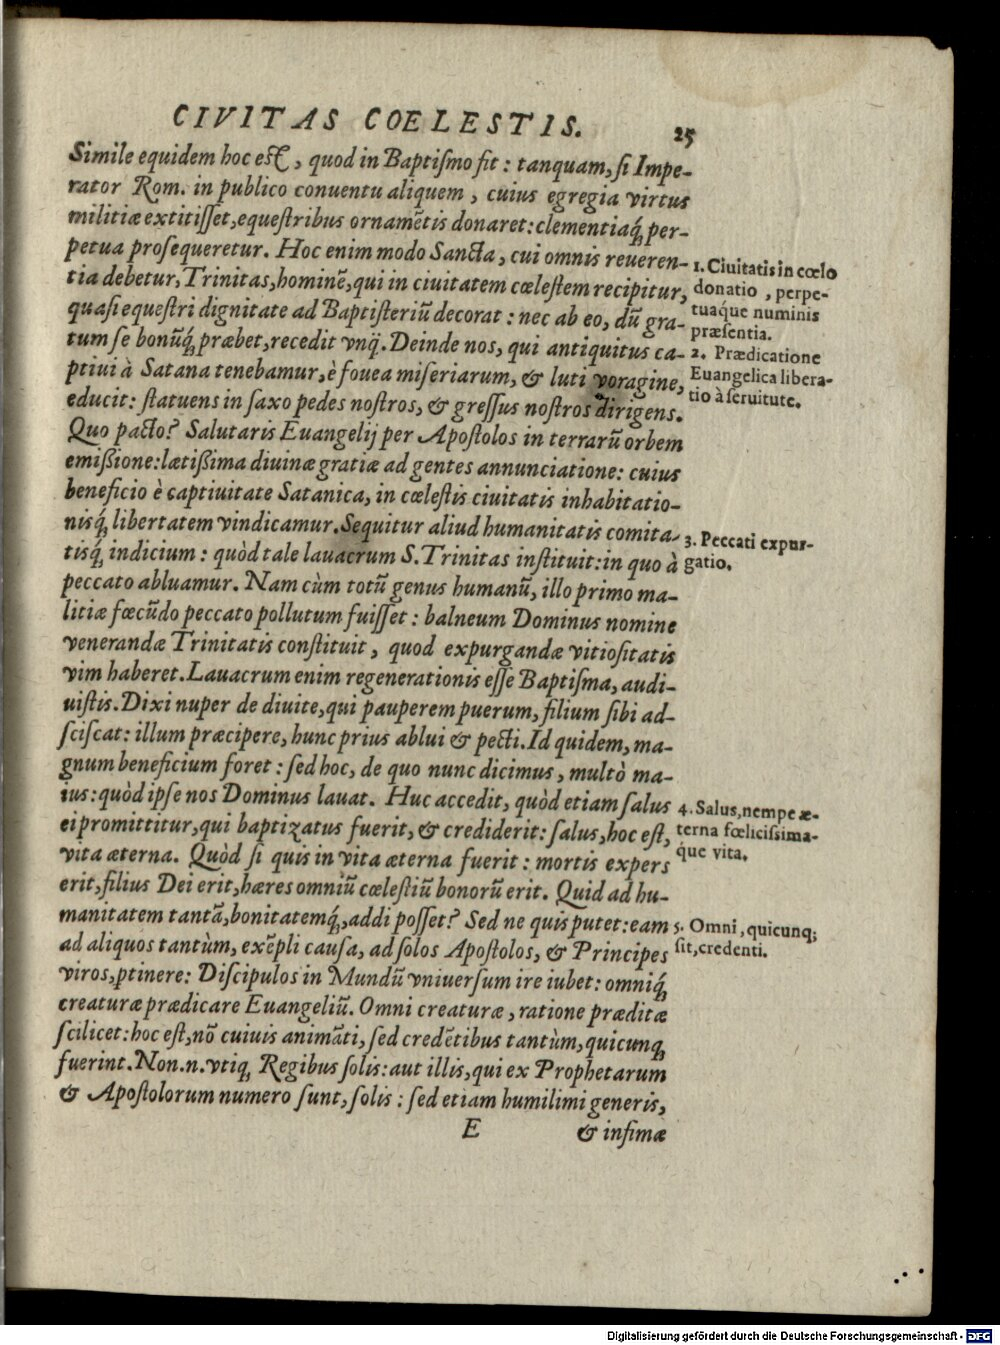 CIVITAS COELESTIS. 25
Simile equidem hoc est, quod in Baptiſmo fit: tanquam, ſi Impe-
rator Rom. in publico conuentu aliquem, cuius egregia virtus
militiæ extitiſſet, equeſtribus ornamẽtis donaret: clementiaq́; per-
petua proſequeretur. Hoc enim modo Sancta, cui omnis reueren-
tia debetur, Trinitas, hominẽ, qui in ciuitatem cœleſtem recipitur,
quaſi equeſtri dignitate ad Baptiſteriũ decorat: nec ab eo, dũ gra-
tum ſe bonũq́; præbet, recedit vnq̃. Deinde nos, qui antiquitus ca-
ptiui à Satana tenebamur, è fouea miſeriarum, & luti voragine,
educit: ſtatuens in ſaxo pedes noſtros, & greſſus noſtros dirigens.
Quo pacto? Salutaris Euangelij per Apoſtolos in terrarũ orbem
emiſsione: lætiſsima diuinæ gratiæ ad gentes annunciatione: cuius
beneficio è captiuitate Satanica, in cœleſtis ciuitatis inhabitatio-
nisq́; libertatem vindicamur. Sequitur aliud humanitatis comita-
tisq́; indicium: quòd tale lauacrum S. Trinitas inſtituit: in quo à
peccato abluamur. Nam cùm totũ genus humanũ, illo primo ma-
litiæ fœcũdo peccato pollutum fuiſſet: balneum Dominus nomine
venerandæ Trinitatis conſtituit, quod expurgandæ vitioſitatis
vim haberet. Lauacrum enim regenerationis eſſe Baptiſma, audi-
uiſtis. Dixi nuper de diuite, qui pauperem puerum, filium ſibi ad-
ſciſcat: illum præcipere, hunc prius ablui & pecti. Id quidem, ma-
gnum beneficium foret: ſed hoc, de quo nunc dicimus, multò ma-
ius: quòd ipſe nos Dominus lauat. Huc accedit, quòd etiam ſalus
ei promittitur, qui baptizatus fuerit, & crediderit: ſalus, hoc eſt,
vita æterna. Quòd ſi quis in vita æterna fuerit: mortis expers
erit, filius Dei erit, hæres omniũ cœleſtiũ bonorũ erit. Quid ad hu-
manitatem tantã, bonitatemq́;, addi poſſet? Sed ne quis putet: eam
ad aliquos tantùm, exẽpli cauſa, ad ſolos Apoſtolos, & Principes
viros, ptinere: Diſcipulos in Mundũ vniuerſum ire iubet: omniq́;
creaturæ prædicare Euangeliũ. Omni creaturæ, ratione præditæ
ſcilicet: hoc eſt, nõ cuiuis animãti, ſed credẽtibus tantùm, quicunq;
fuerint. Non.n.vtiq; Regibus ſolis: aut illis, qui ex Prophetarum
& Apoſtolorum numero ſunt, ſolis: ſed etiam humilimi generis,
E & infimæ
1. Ciuitatis in cœlo
donatio, perpe-
tuaq́ue numinis
præſentia.
2. Prædicatione
Euangelica libera-
tio à ſeruitute.
3. Peccati expur-
gatio.
4. Salus, nempe æ-
terna fœliciſsima-
q́ue vita.
5. Omni, quicunq;
ſit, credenti.
Digitalisierung gefördert durch die Deutsche Forschungsgemeinschaft - DFG